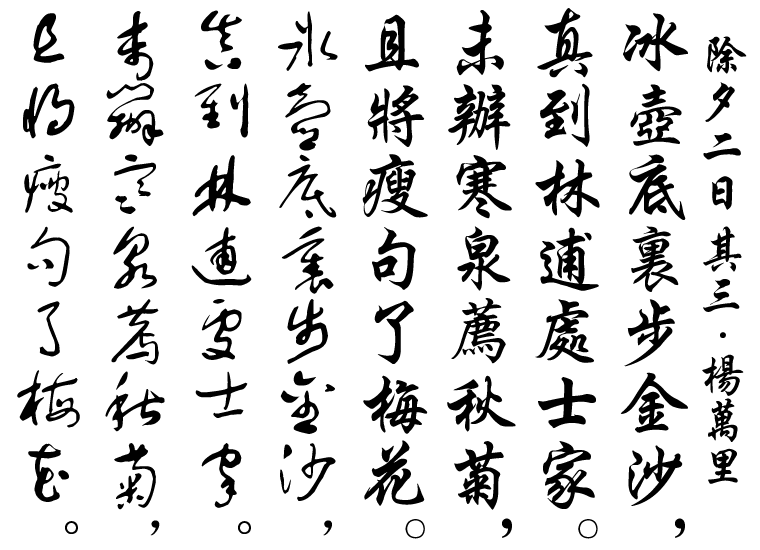 除夕二日其三·楊萬里
冰壺底裏步金沙，
真到林逋處士家。
未辦寒泉薦秋菊，
且將瘦句了梅花。
冰壺底裏步金沙，
真到林逋處士家。
未辦寒泉薦秋菊，
且將瘦句了梅花。